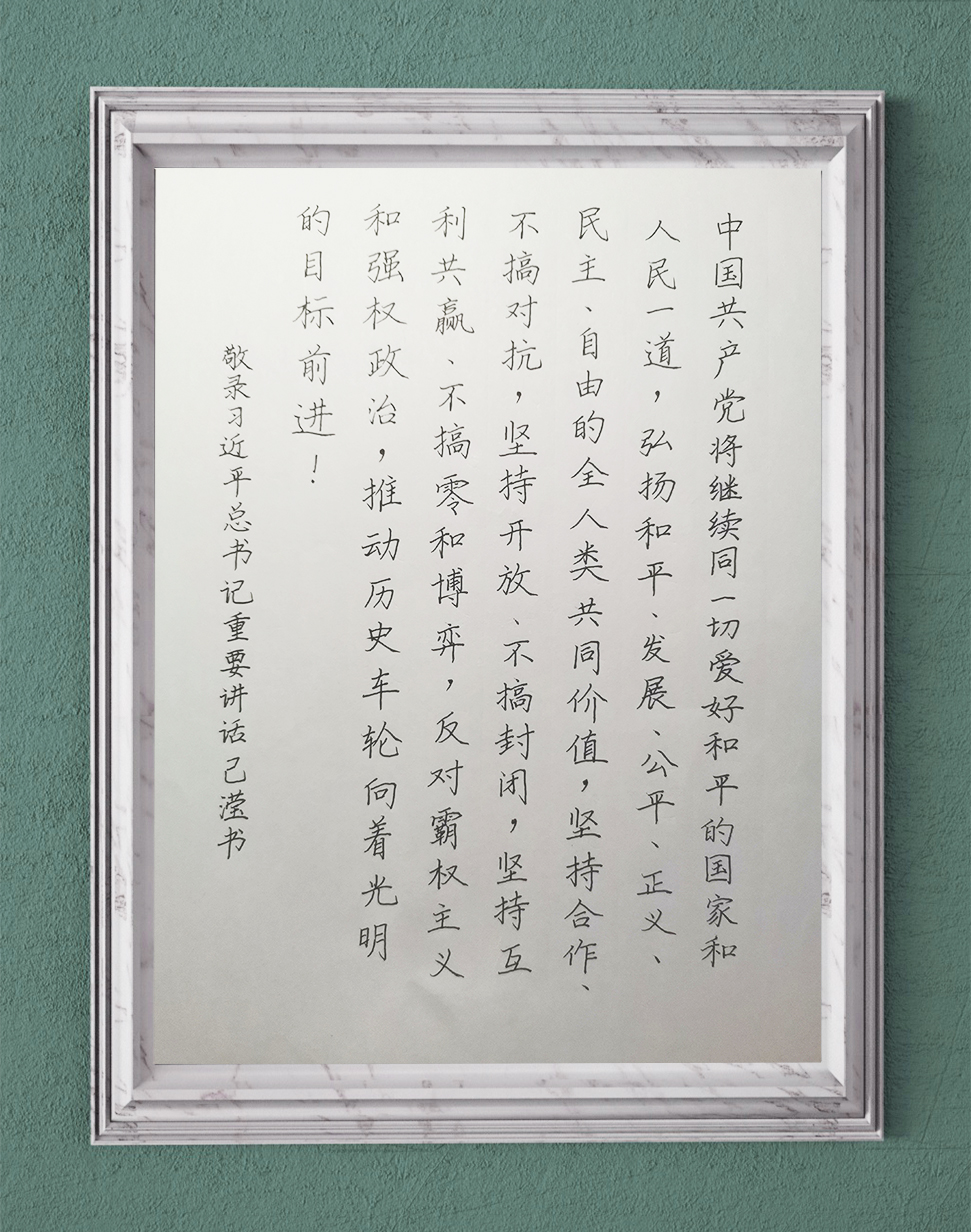 中国共产党将继续同一切爱好和平的国家和
人民一道，弘扬和平、发展、公平、正义、
民主、自由的全人类共同价值，坚持合作、
不搞对抗，坚持开放、不搞封闭，坚持互
利共赢、不搞零和博弈，反对霸权主义
和强权政治，推动历史车轮向着光明
的目标前进！
敬录习近平总书记重要讲话己滢书